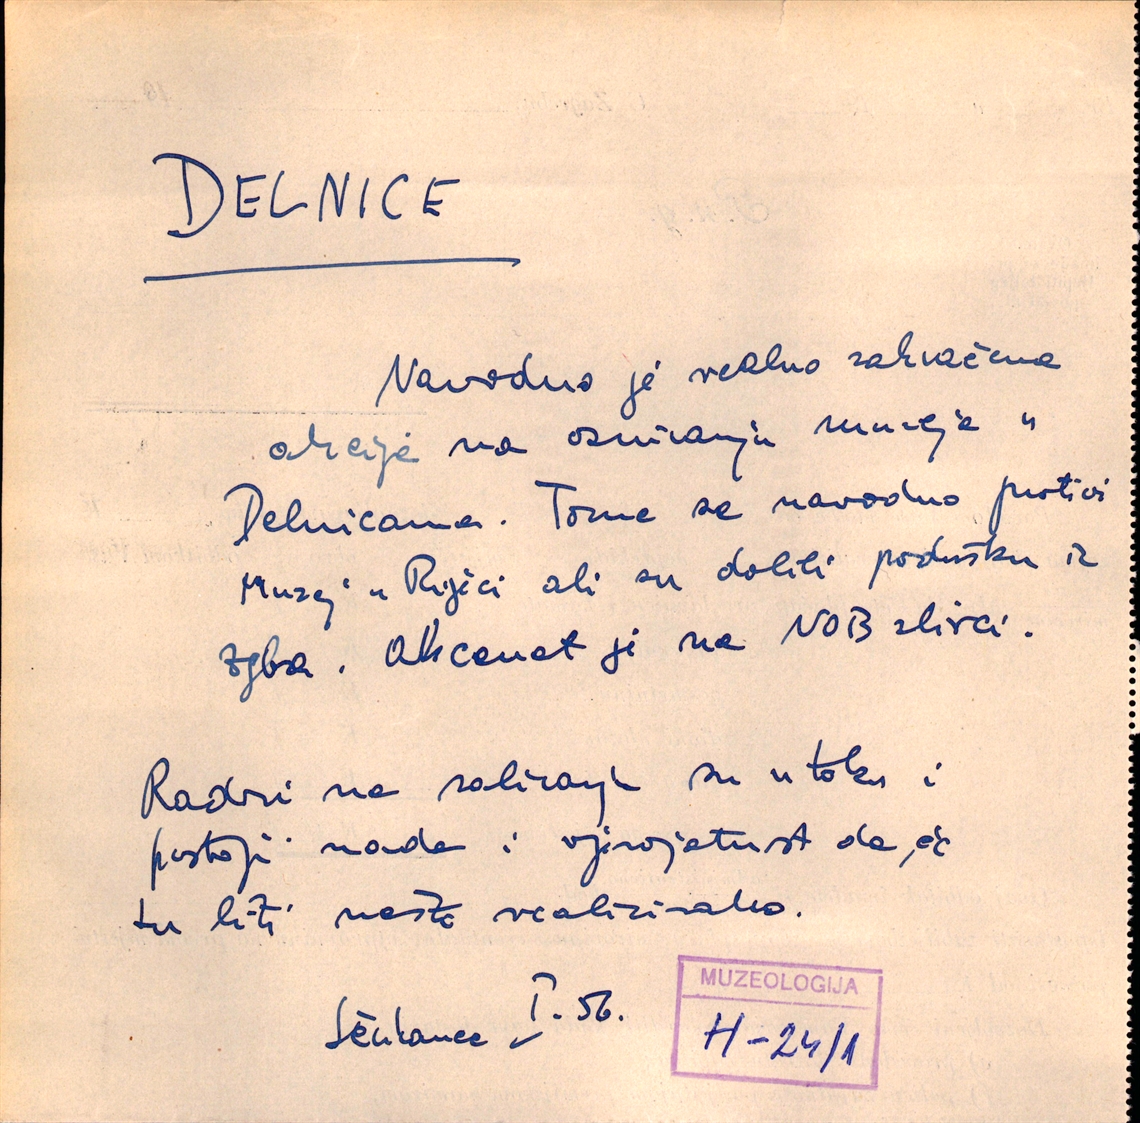 DELNICE
Navodno je realno zakvačena
akcija na osnivanju muzeja u
Delnicama. Tome se navodno protivi
Muzej u Rijeci ali su dobili podršku iz
Zgba. Akcenat je na NOB zbirci.
Radovi na sabiranju su u toku i
postoji nada i vjerojatnost da će
tu biti nešto realizirano.
I. 56.
MUZEOLOGIJA
H-24/1